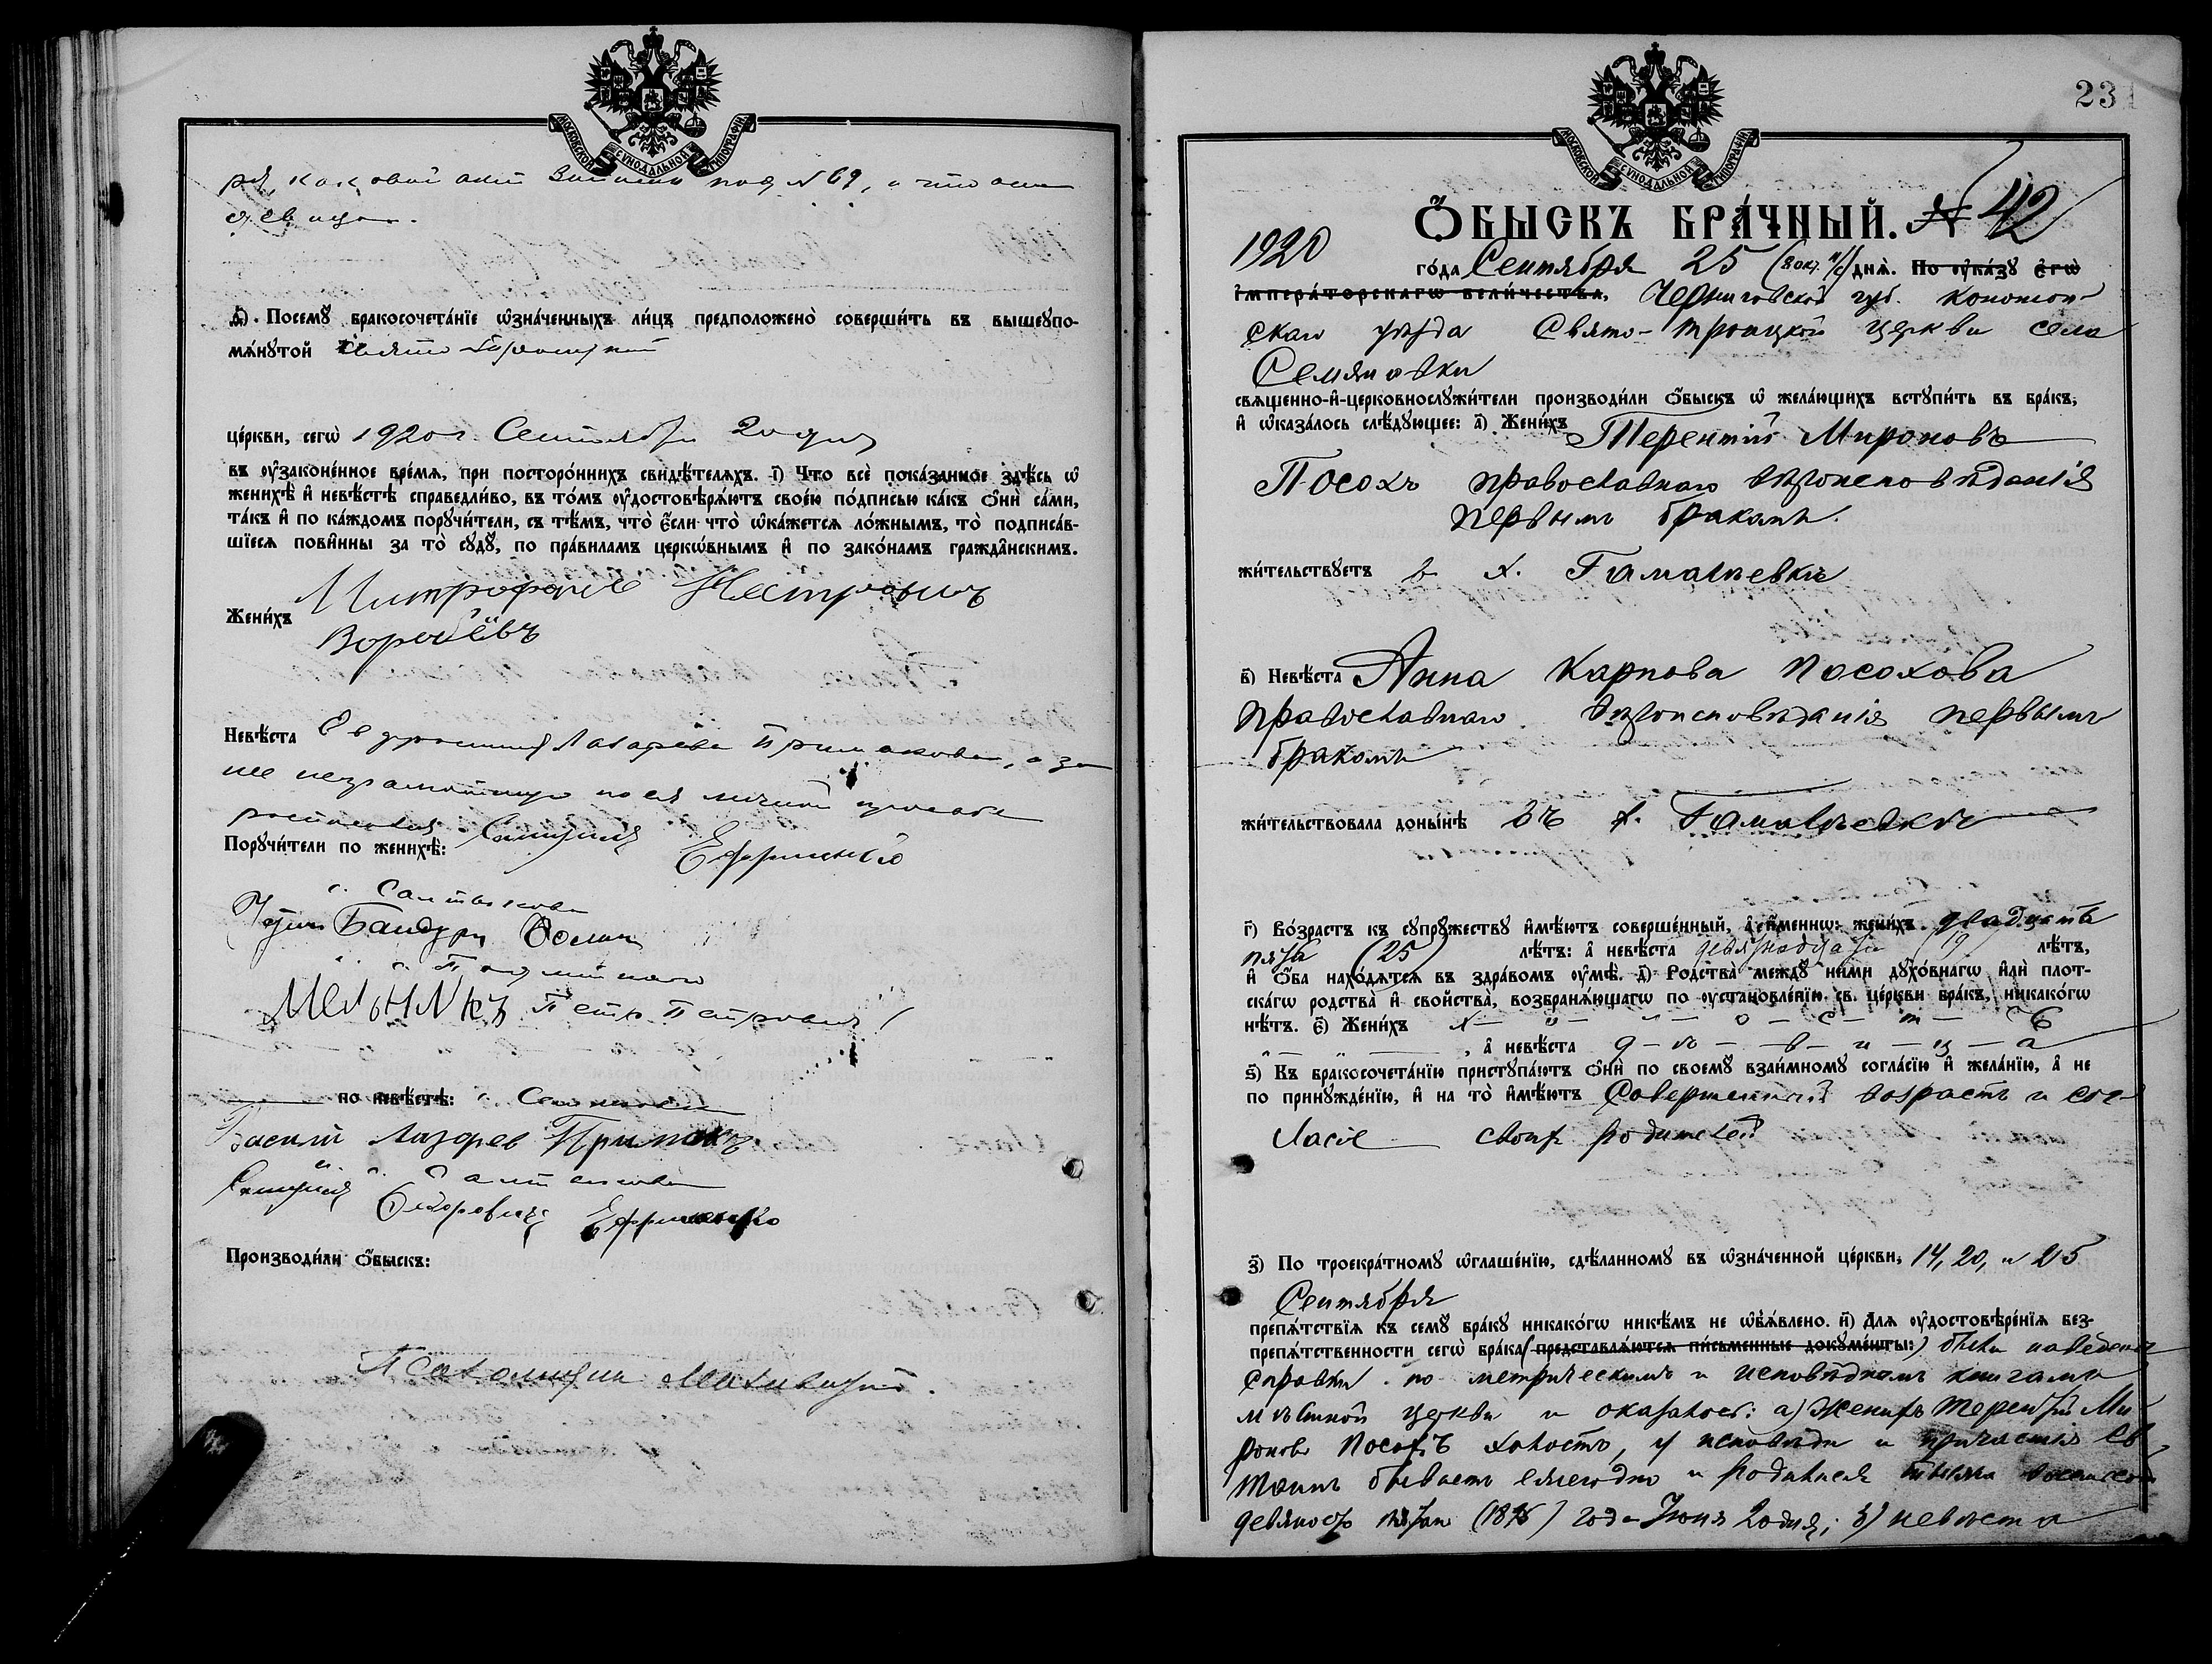 МОСКОВСКОЙ СУНОДАЛЬНОЙ ТИПОГРАФІИ
ря, каковой актъ записанъ подъ № 69, и что она
девица.
д҃). Посемꙋ бракосочета́нїе ѡ҆зна́ченныхъ ли́цъ предположено̀ соверши́ть въ вышеꙋпо-
мѧ́нꙋтой Свято Троицкой
це́ркви, сегѡ̀ 1920 г. Сентября 20 дня
въ ᲂу҆зако́ненное вре́мѧ, при посторо́ннихъ свидѣ́телѧхъ. і҃) Что̀ всѐ пока́занное здѣ́сь ѡ҆
женихѣ̀ и҆ невѣ́стѣ справедли́во, въ то́мъ ᲂу҆достовѣрѧ́ютъ свое́ю по́дписью ка́къ ѻ҆нѝ са́ми,
та́къ и҆ по ка́ждомъ порꙋчи́тели, съ тѣ́мъ, что̀ є҆́сли что̀ ѡ҆ка́жетсѧ ло́жнымъ, то̀ подписа́в-
шїесѧ пови́нны за то̀ сꙋдꙋ̀, по пра́виламъ церкѡ́внымъ и҆ по зако́намъ гражда̑нскимъ.
Жени́хъ Митрофанъ Нестровичъ
Воробьёвъ
Невѣ́ста Евфросинія Лазарева Примакова, а за
нее неграмотную по ея личной просьбе
росписался Спиридонъ Ефименко
Порꙋчи́тели по женихѣ̀:
с. Салтыкова
Бандура
Мельникъ Петръ Петровичъ
по невѣ́стѣ: с. Семяновки
Василій Лазарев Примакъ
с. Салтыкова
Сидоровичъ Ефименко
Производи́ли ѻ҆́быскъ:
Псаломщикъ
231
МОСКОВСКОЙ СУНОДАЛЬНОЙ ТИПОГРАФІИ
Ѻ҆́БЫСКЪ БРА́ЧНЫЙ. № 42
1920 го́да Сентября 25 (8 окт. н/с) днѧ̀. По ᲂу҆ка́зꙋ є҆гѡ̀
і҆мпера́торскагѡ вели́чества, Черниговской губ. Конотоп-
скаго уѣзда Свято-Троицкой церкви села
Семяновки
свѧще́нно-и҆-церковнослꙋжи́тели производи́ли ѻ҆́быскъ ѡ҆ жела́ющихъ встꙋпи́ть въ бра́къ,
и҆ ѡ҆каза́лось слѣ́дꙋющее: а҃) Жени́хъ Терентій Мироновъ
Посохъ православнаго вѣроисповѣданія
первымъ бракомъ.
жи́тельствꙋетъ в х. Гамалѣевки
в҃) Невѣ́ста Анна Карпова Посохова
православнаго вѣроисповѣданія первымъ
бракомъ
жи́тельствовала доны́нѣ въ х. Гамалѣевкѣ
г҃) Во́зрастъ къ сꙋпрꙋ́жествꙋ и҆мѣ́ютъ соверше́нный, а҆ и҆́менни: жени́хъ двадцать
пять (25) лѣ́тъ: а҆ невѣ́ста девятнадцать (19) лѣ́тъ,
и҆ ѻ҆́ба нахо́дѧтсѧ въ здра́вомъ ᲂу҆мѣ̀. д҃) Родства̀ междꙋ̀ ни́ми дꙋхо́внагѡ и҆лѝ плот-
ска́гѡ родства̀ и҆ свойства̀, возбранѧ́ющагѡ по ᲂу҆становле́нїю св. це́ркви бра́къ, никако́гѡ
нѣ́тъ. є҃) Жени́хъ х—о—л—о—с—т—ъ
, а҆ невѣ́ста д—ѣ—в—и—ц—а
ѕ҃) Къ бракосочета́нїю пристꙋпа́ютъ ѻ҆нѝ по своемꙋ̀ взаи́мномꙋ согла́сїю и҆ жела́нїю, а҆ не
по принꙋжде́нїю, и҆ на то̀ и҆мѣ́ютъ совершенный возрастъ и сог-
ласіе своих родителей
з҃) По троекра́тномꙋ ѡ҆глаше́нїю, сдѣ́ланномꙋ въ ѡ҆зна́ченной це́ркви, 14, 20, и 25
Сентября
препѧ́тствїѧ къ семꙋ̀ бра́кꙋ никако́гѡ никѣ́мъ не ѡ҆б̾ѧ́влено. и҃) Длѧ ᲂу҆достовѣре́нїѧ без-
препѧ́тственности сегѡ̀ бра́ка (представлѧ́ютсѧ пи́сьменные докꙋме́нты:) были наведены
справки по метрическимъ и исповѣднымъ книгамъ
мѣстной церкви и оказалось: а) женихъ Терентій Ми-
роновъ Посохъ холостъ, у исповѣди и причастія Св.
Таинъ бываетъ ежегодно и родился тысяча восемсотъ
девяносто пятаго (1895) года Іюня 20 дня; б) невѣста